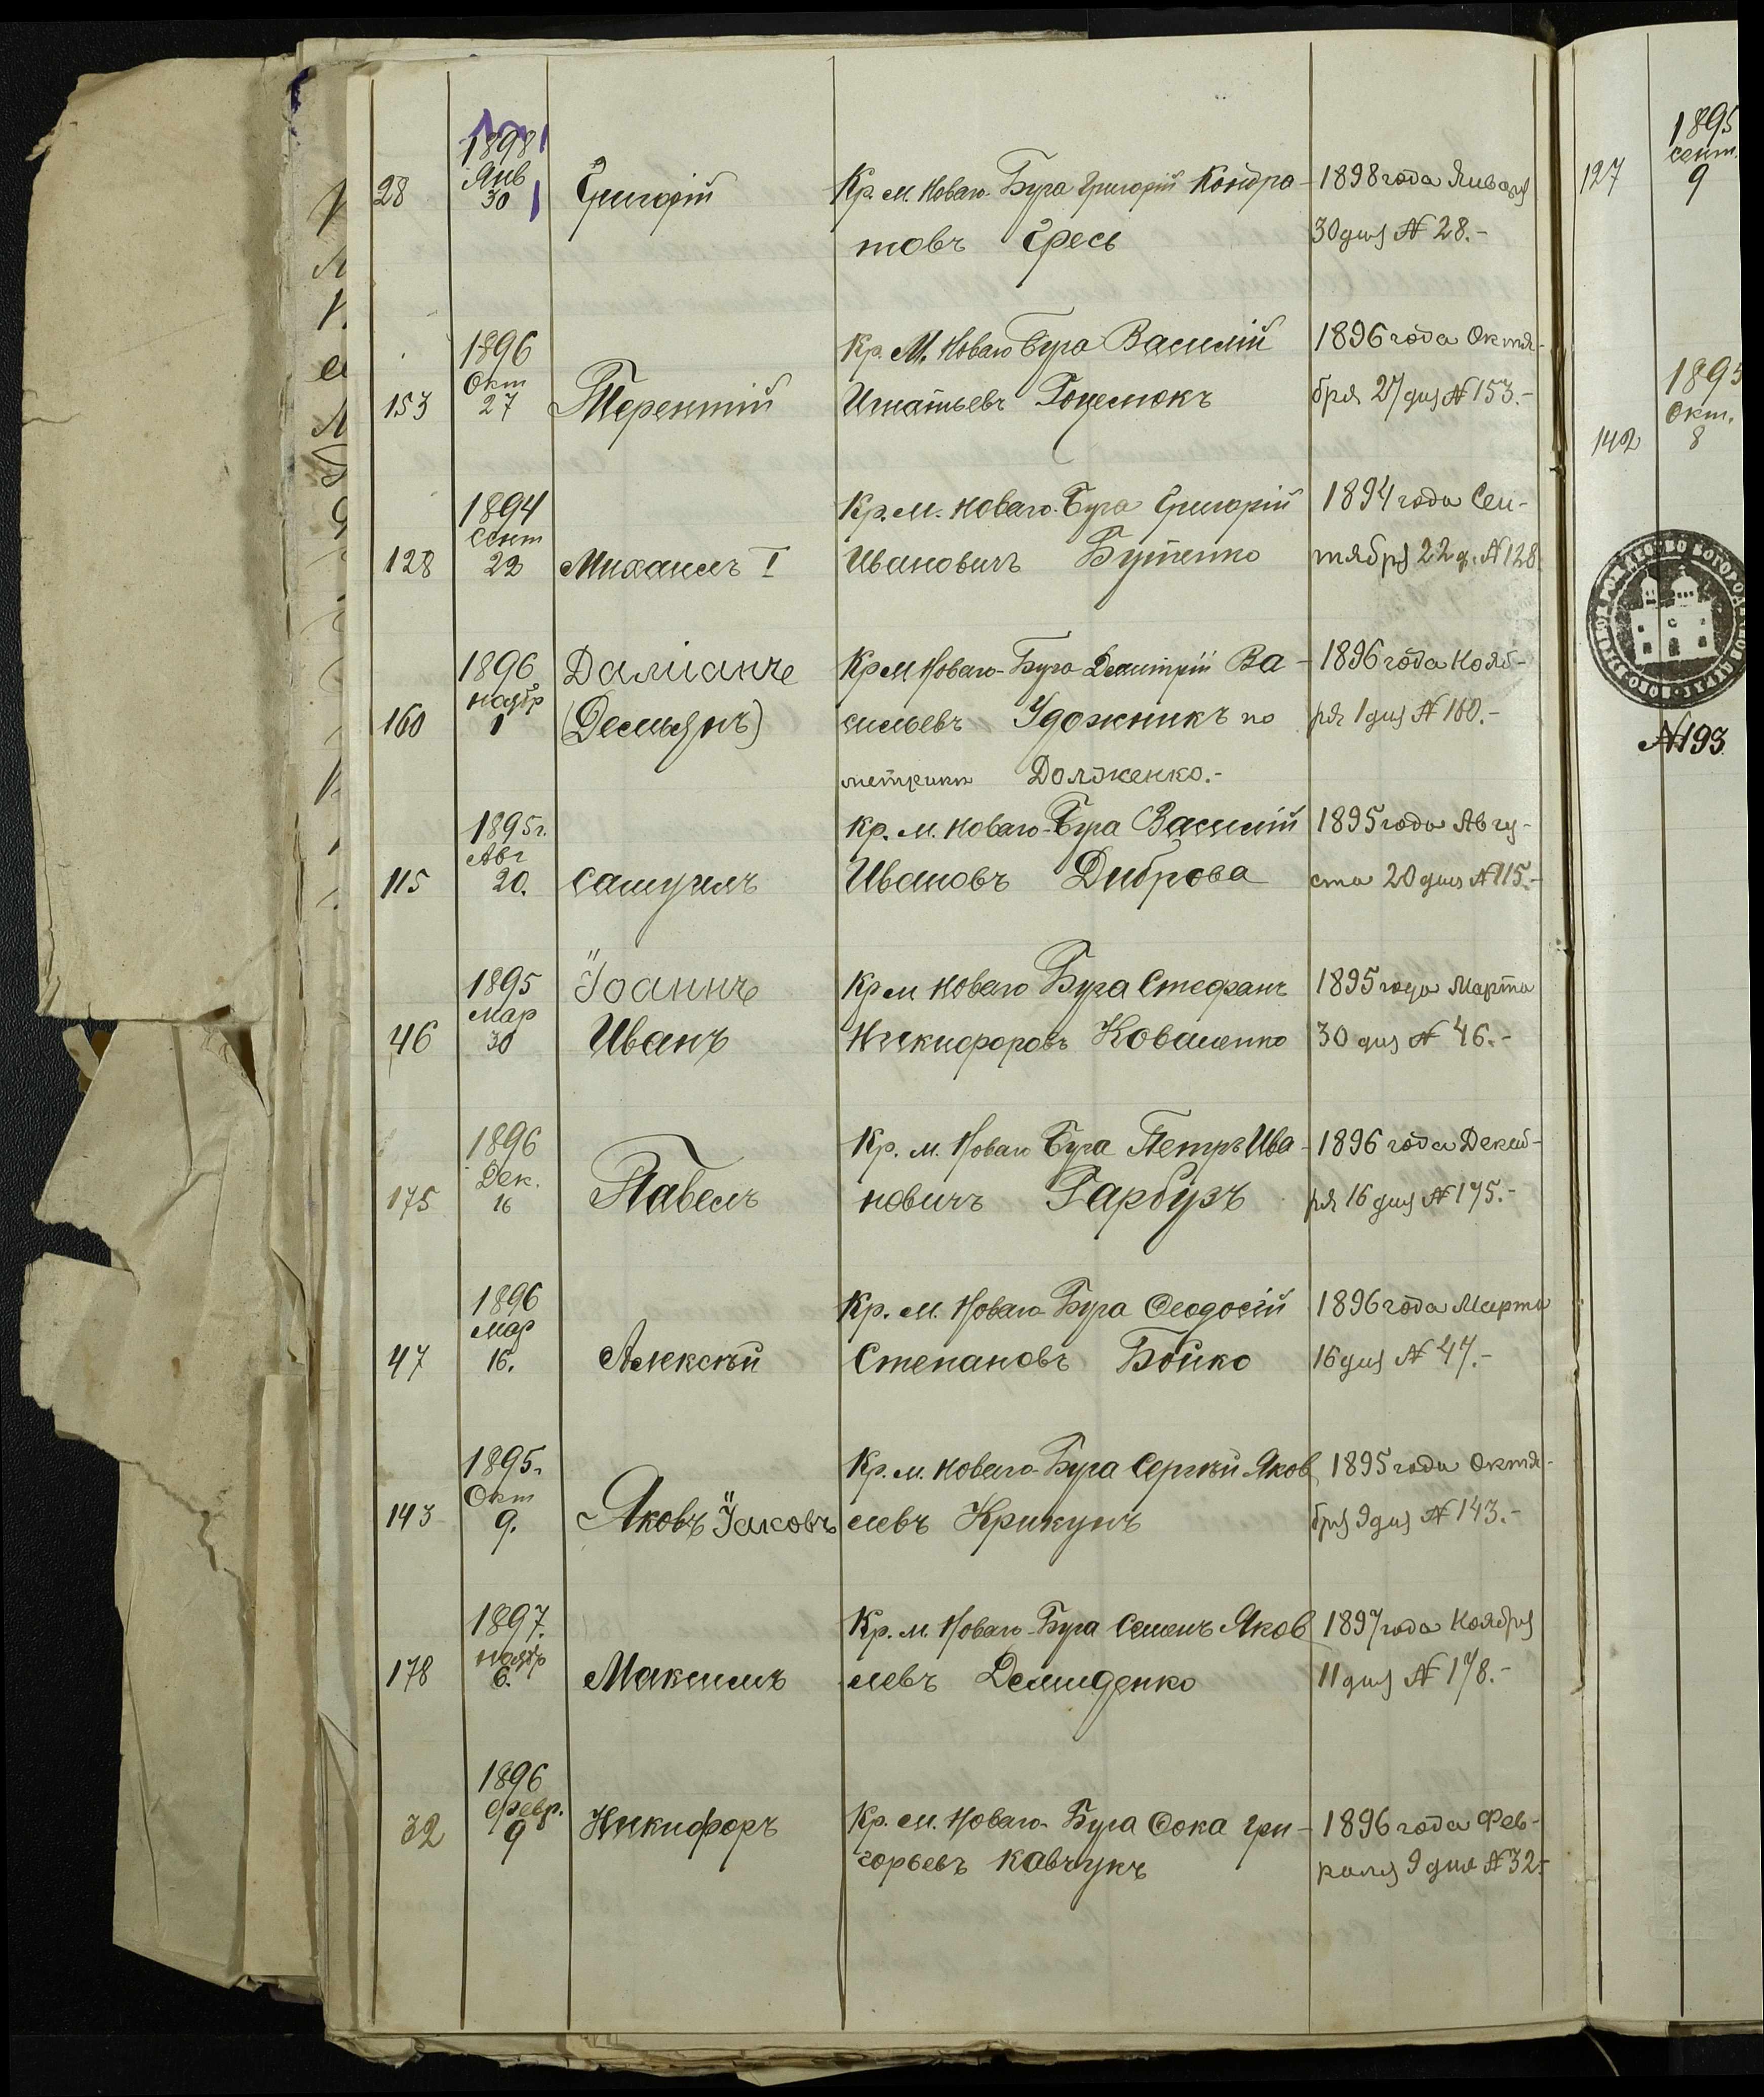 1898
Янв
28 30 Григорій Кр. м. Новаго-Буга Григорій Кондра- 1898 года Января
товъ Гресь 30 дня № 28.-
1896 Кр. М. Новаго Буга Василій 1896 года Октя-
Окт
153 27 Терентій Игнатьевъ Гоцелюкъ бря 27 дня № 153.-
1894 Кр. м. Новаго-Буга Григорій 1894 года Сен-
Сент
128 22 Михаилъ I Ивановичъ Бутенко тября 22 д. № 128.
1896 Даміанъ Кр м Новаго-Буга Димитрій Ва- 1896 года Нояб-
ноябр
160 1 (Демьянъ) сильевъ Удожникъ по ря 1 дня № 160.-
метрики Долженко.-
1895 г. Кр. м. Новаго-Буга Василій 1895 года Авгу-
Авг
115 20. Самуилъ Ивановъ Диброва ста 20 дня № 115.-
1895 Іоаннъ Кр м Новаго Буга Стефанъ 1895 года Марта
Мар
46 30 Иванъ Никифоровъ Коваленко 30 дня № 46.-
1896 Кр. м. Новаго Буга Петръ Ива- 1896 года Декаб-
Дек.
175 16 Павелъ новичъ Гарбузъ ря 16 дня № 175.-
1896 Кр. м. Новаго-Буга Ѳеодосій 1896 года Марта
Мар
47 16. Алексѣй Степановъ Бойко 16 дня № 47.-
1895. Кр. м. Новаго-Буга Сергѣй Яков 1895 года Октя-
Окт
143 9. Яковъ Іаковъ левъ Крикунъ бря 9 дня № 143.-
1897. Кр. м. Новаго-Буга Семенъ Яков 1897 года Ноября
ноябр
178 6. Максимъ левъ Демиденко 11 дня № 178.-
1896
февр.
32 9 Никифоръ Кр. м. Новаго-Буга Ѳока Гри- 1896 года Фев-
горьевъ Кавчукъ раля 9 дня № 32.-
1895
сент.
127 9
1895
Окт.
142 8
№ 193